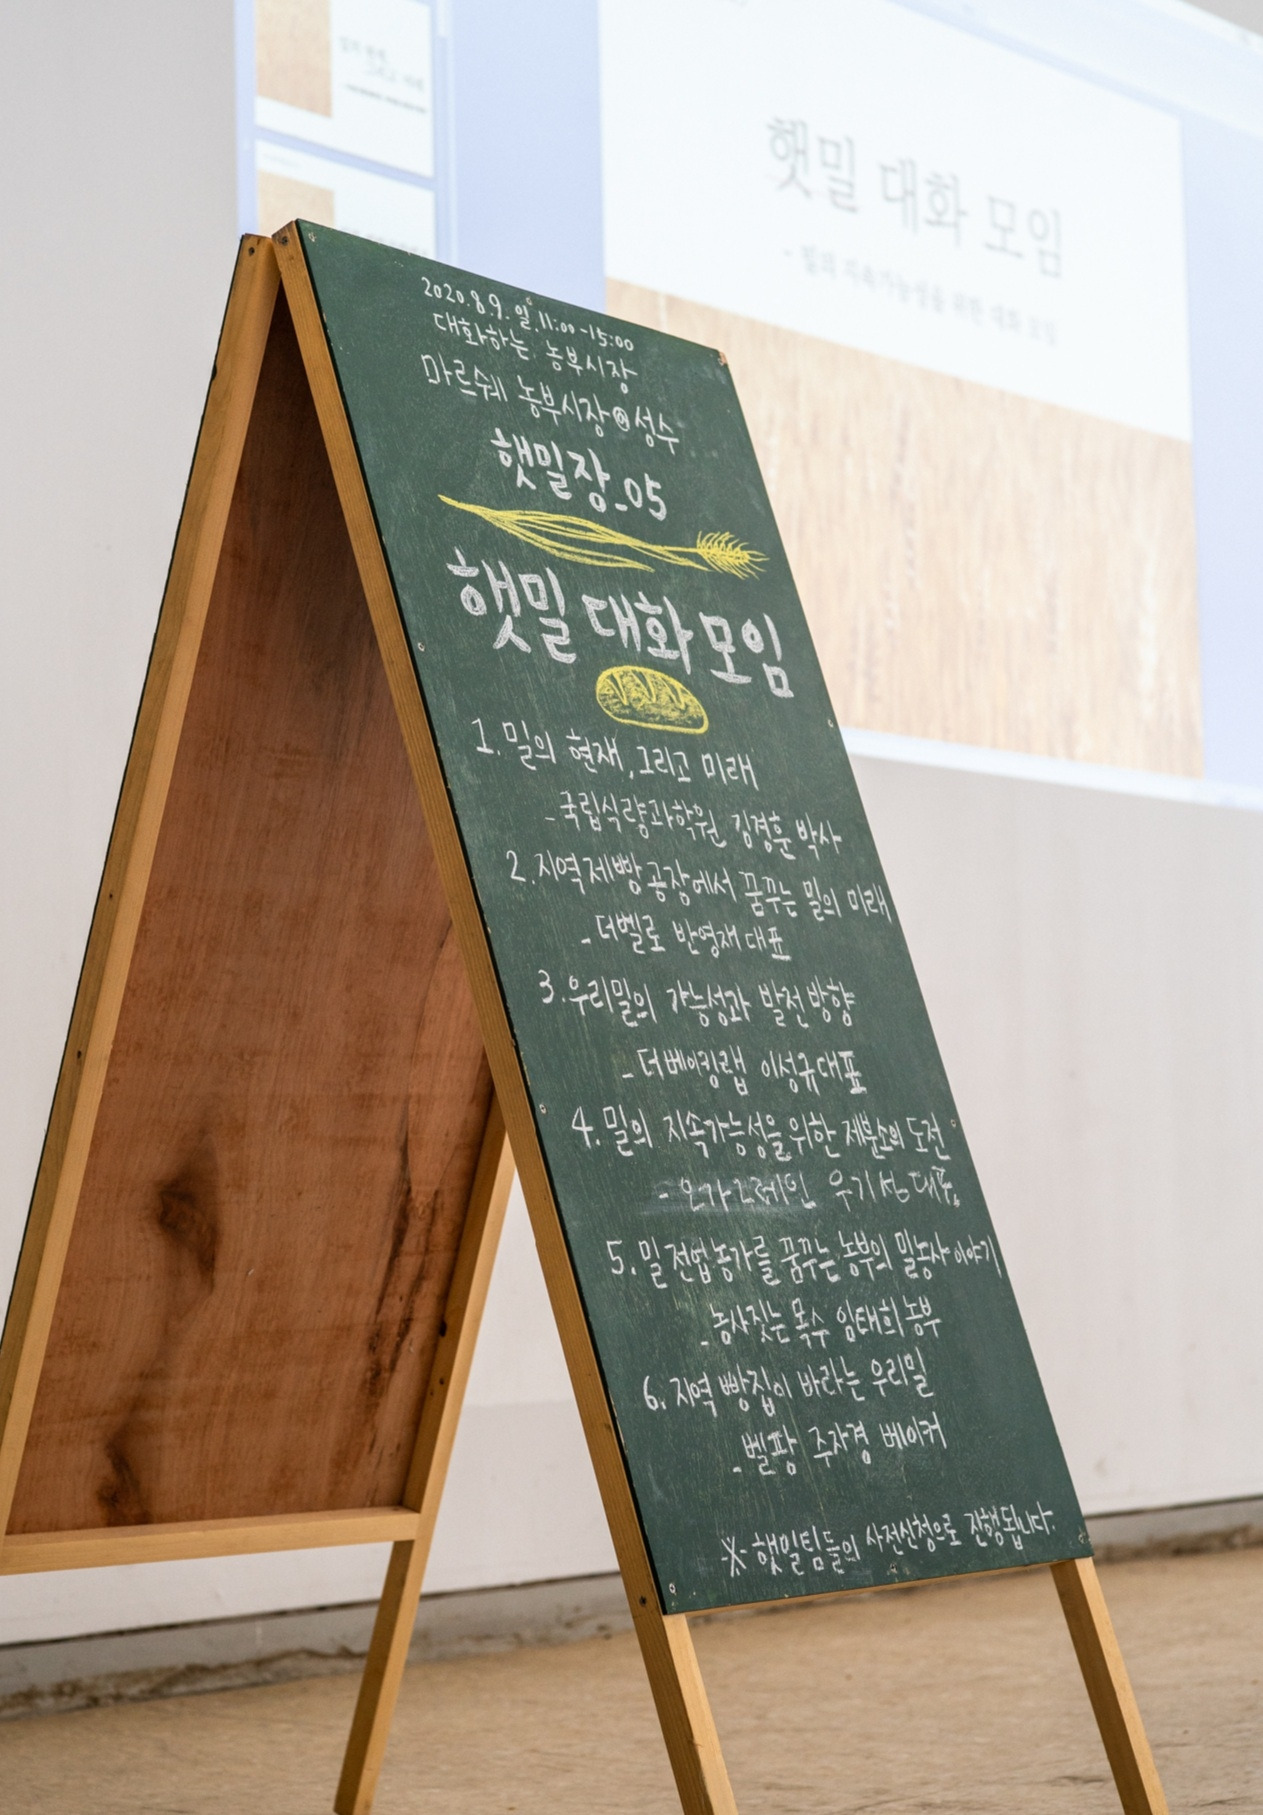 햇밀 대화 모임
- 밀의 지속가능성을 위한 대화 모임
2020.8.9.일.11:00-15:00
대화하는 농부시장
마르쉐 농부시장@성수
햇밀장_05
햇밀 대화 모임
1. 밀의 현재, 그리고 미래
- 국립식량과학원 김경훈 박사
2. 지역제빵공장에서 꿈꾸는 밀의 미래
- 더벨로 반영재 대표
3. 우리밀의 가능성과 발전 방향
- 더베이킹랩 이성규 대표
4. 밀의 지속가능성을 위한 제분소의 도전
- 오가그레인 우기선 대표
5. 밀 전업농가를 꿈꾸는 농부의 밀농사 이야기
- 농사짓는 목수 임태희 농부
6. 지역 빵집이 바라는 우리밀
- 벨팡 주자경 베이커
※ 햇밀팀들의 사전신청으로 진행됩니다.